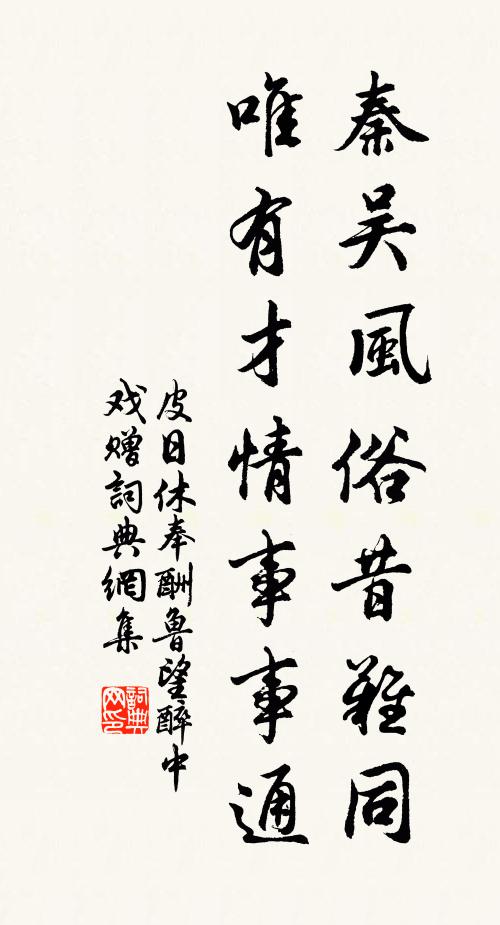 秦吴風俗昔難同
唯有才情事事通
皮日休奉酬魯望醉中
戏赠詞典網集
詞典
网印